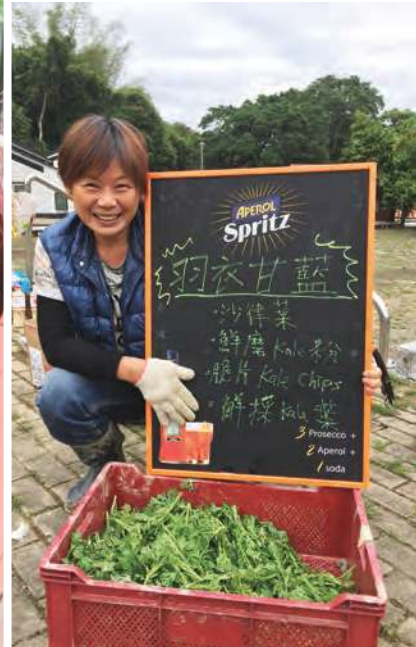 APEROL
Spritz
羽衣甘藍
·沙律菜
·鮮磨Kale粉
·脆片Kale Chips
·鮮採Kale葉
3 Prosecco +
2 Aperol +
1 soda